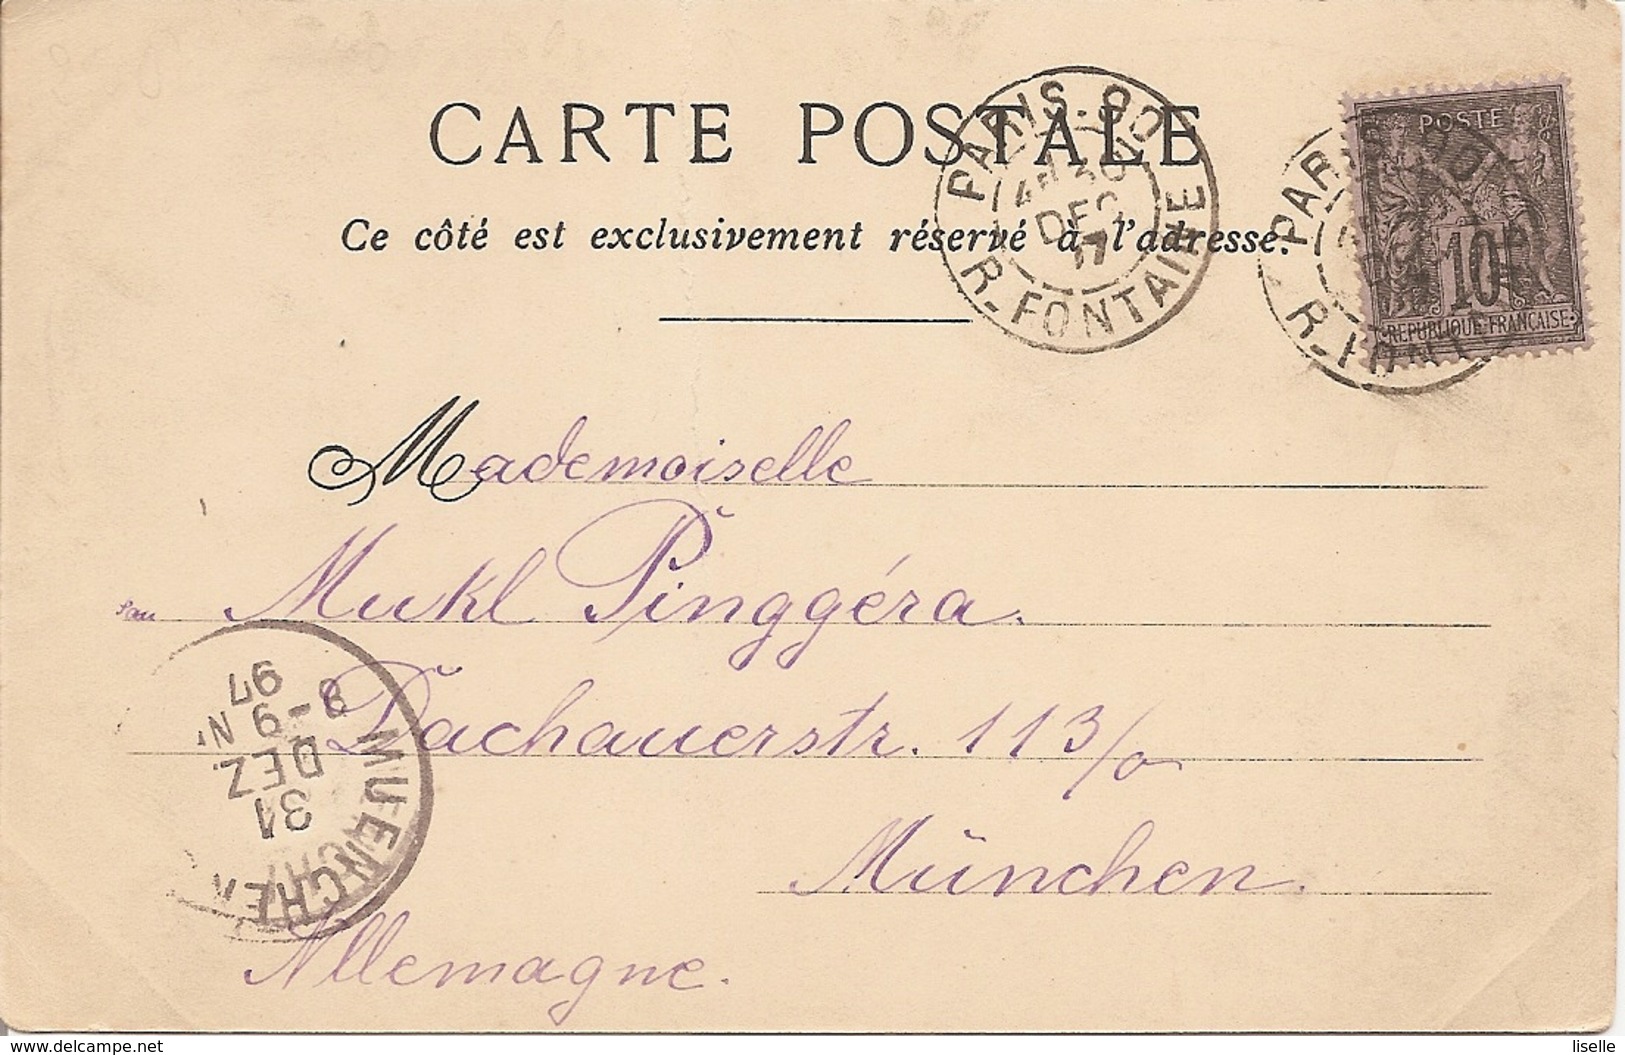 CARTE POSTALE
Ce côté est exclusivement réservé à l'adresse.
PARIS.90
30
DEC
97
R. FONTAINE
POSTE
10
REPUBLIQUE FRANÇAISE
PARIS
Mademoiselle
Mukl Pinggéra.
Dachauerstr. 113/0
München.
Allemagne.
MUENCHEN
31
DEZ.
8-9 N
97
delcampe.net
liselle